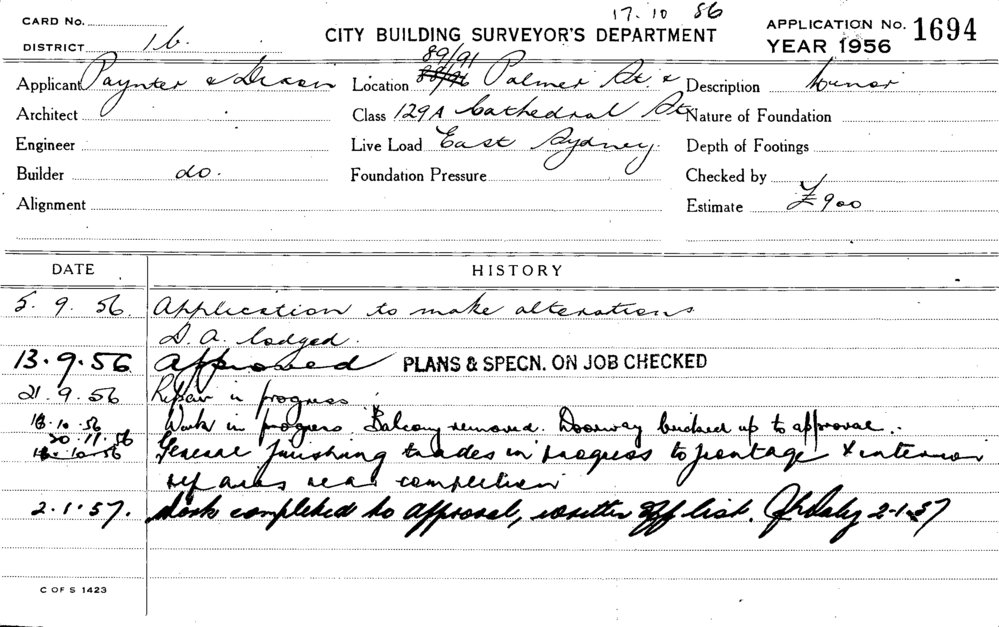 17.10 56
CARD No.
DISTRICT 1b.
CITY BUILDING SURVEYOR'S DEPARTMENT
APPLICATION No. 1694
YEAR 1956
89/91
Applicant Paynter & Dixon Location 88/96 Palmer St. & Description Minor
Architect Class 129A Cathedral St Nature of Foundation
Engineer Live Load East Sydney. Depth of Footings
Builder do. Foundation Pressure Checked by
Alignment Estimate £900
DATE HISTORY
5.9.56. Application to make alterations
D.A. lodged.
13.9.56 Approved PLANS & SPECN. ON JOB CHECKED
21.9.56 Repair in progress
16.10.56 Work in progress. Balcony removed. Doorway bricked up to approval.
20.11.56
18.10.56 General finishing trades in progress to frontage & interior
repairs near completion
2.1.57. Work completed to approval, written off list. Daly 2-1-57
C OF S 1423